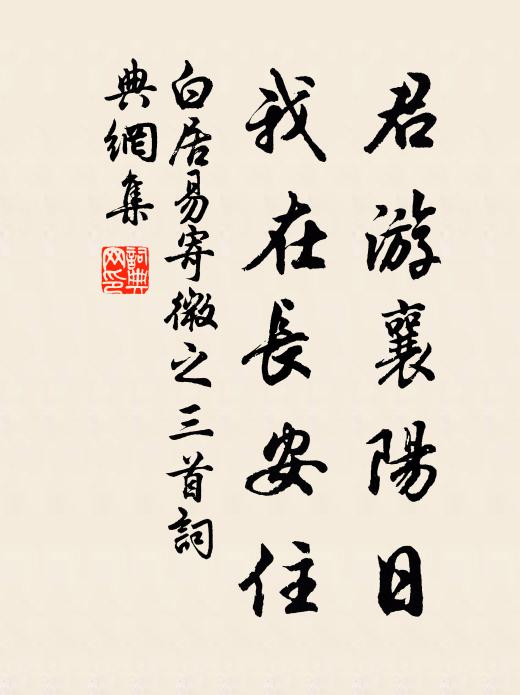 君游襄陽日
我在長安住
白居易寄微之三首詞
典網集
詞典
网印